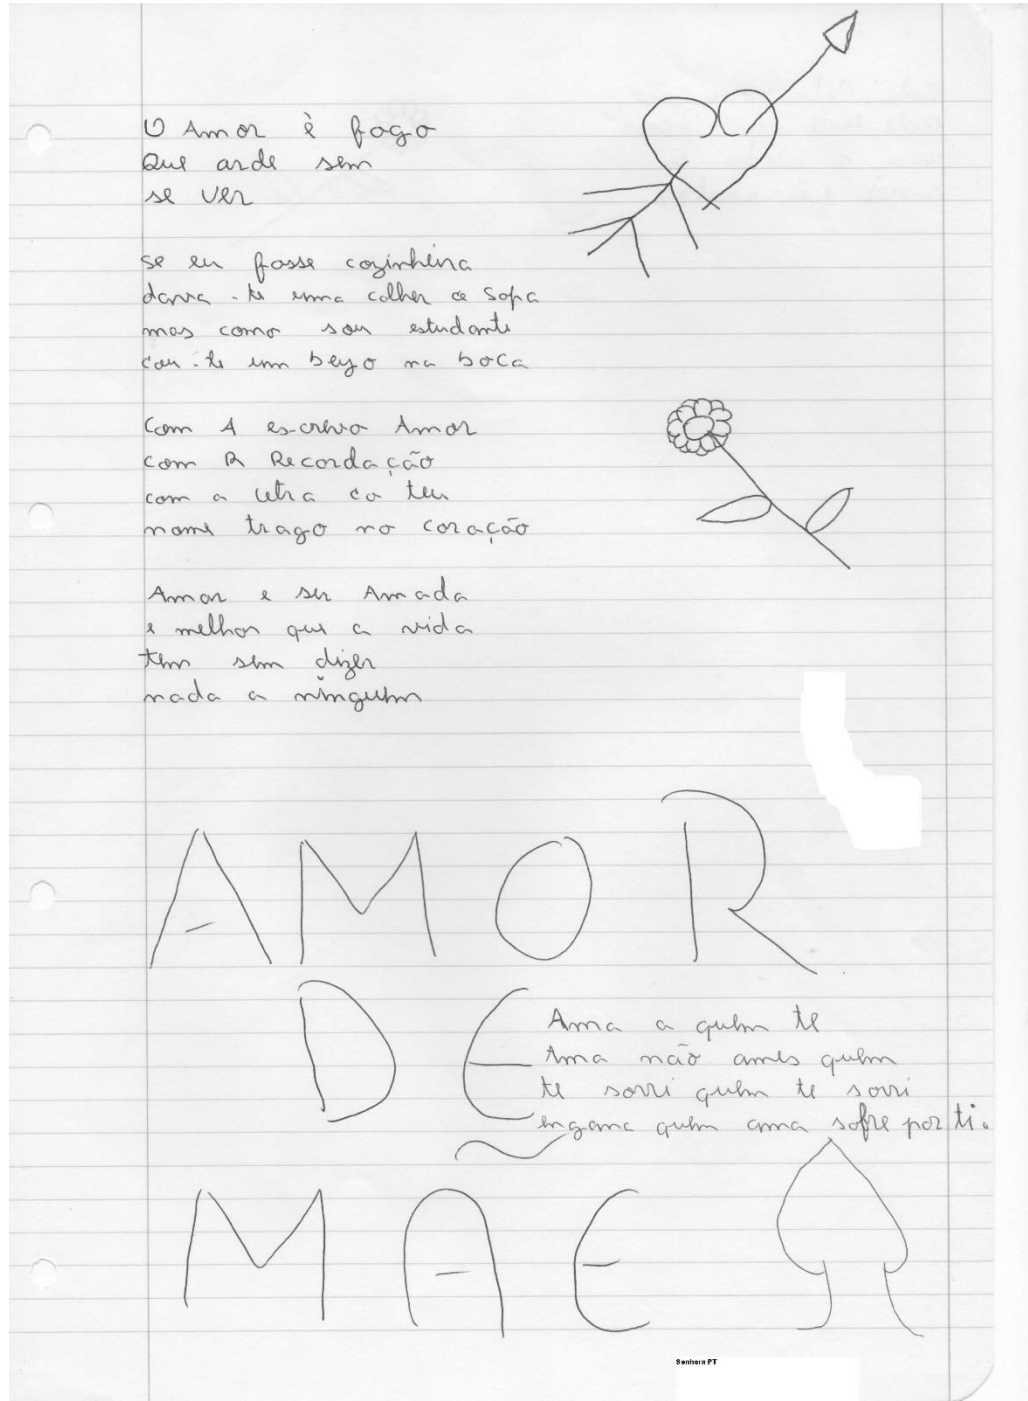 O Amor è fogo
que arde sem
se ver
se eu fosse cozinheira
dava-te uma colher de sopa
mas como sou estudante
dou-te um beyo na boca
Com A escrevo Amor
com R Recordação
com a letra do teu
nome trago no coração
Amar e ser Amada
e melhor que a vida
tem sem dizer
nada a ninguem
AMOR
DE
Ama a quem te
Ama não ames quem
te sorri quem te sorri
engana quem ama sofre por ti.
MÃE
Senhora PT